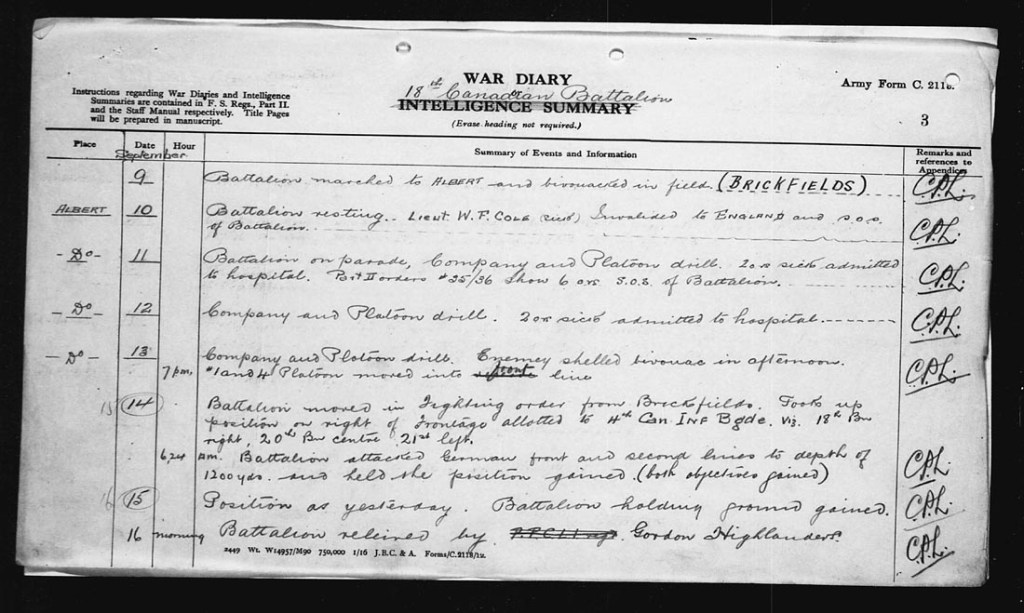 WAR DIARY
18th Canadian Battalion
INTELLIGENCE SUMMARY
(Erase heading not required.)
Army Form C. 2118.
3
Instructions regarding War Diaries and Intelligence
Summaries are contained in F. S. Regs., Part II.
and the Staff Manual respectively. Title Pages
will be prepared in manuscript.
Place Date Hour Summary of Events and Information Remarks and references to Appendices
September
9 Battalion marched to ALBERT and bivouacked in field (BRICKFIELDS) C.P.L.
ALBERT 10 Battalion resting. Lieut. W.F. COLE (sick) Invalided to ENGLAND and S.O.S.
of Battalion. C.P.L.
- Do - 11 Battalion on parade, Company and Platoon drill. 2 ors sick admitted
to hospital. Part II orders #25/36 show 6 ors. S.O.S. of Battalion. C.P.L.
- Do - 12 Company and Platoon drill. 2 ors sick admitted to hospital. C.P.L.
- Do - 13 Company and Platoon drill. Enemey shelled bivouac in afternoon.
7 pm. #1 and 4 Platoon moved into front line C.P.L.
15 14 Battalion moved in Fighting order from Brickfields. Took up
position on right of frontage allotted to 4th Can. Inf Bgde. Viz. 18th Bn
right, 20th Bn centre 21st left.
6 20 am. Battalion attacked German front and second lines to depth of
1200 yds. and held the position gained. (both objectives gained) C.P.L.
16 15 Position as yesterday. Battalion holding ground gained. C.P.L.
16 morning Battalion releived by Gordon Highlanders. C.P.L.
2449 Wt. W14957/M90 750,000 1/16 J.B.C. & A. Forms/C.2118/12.